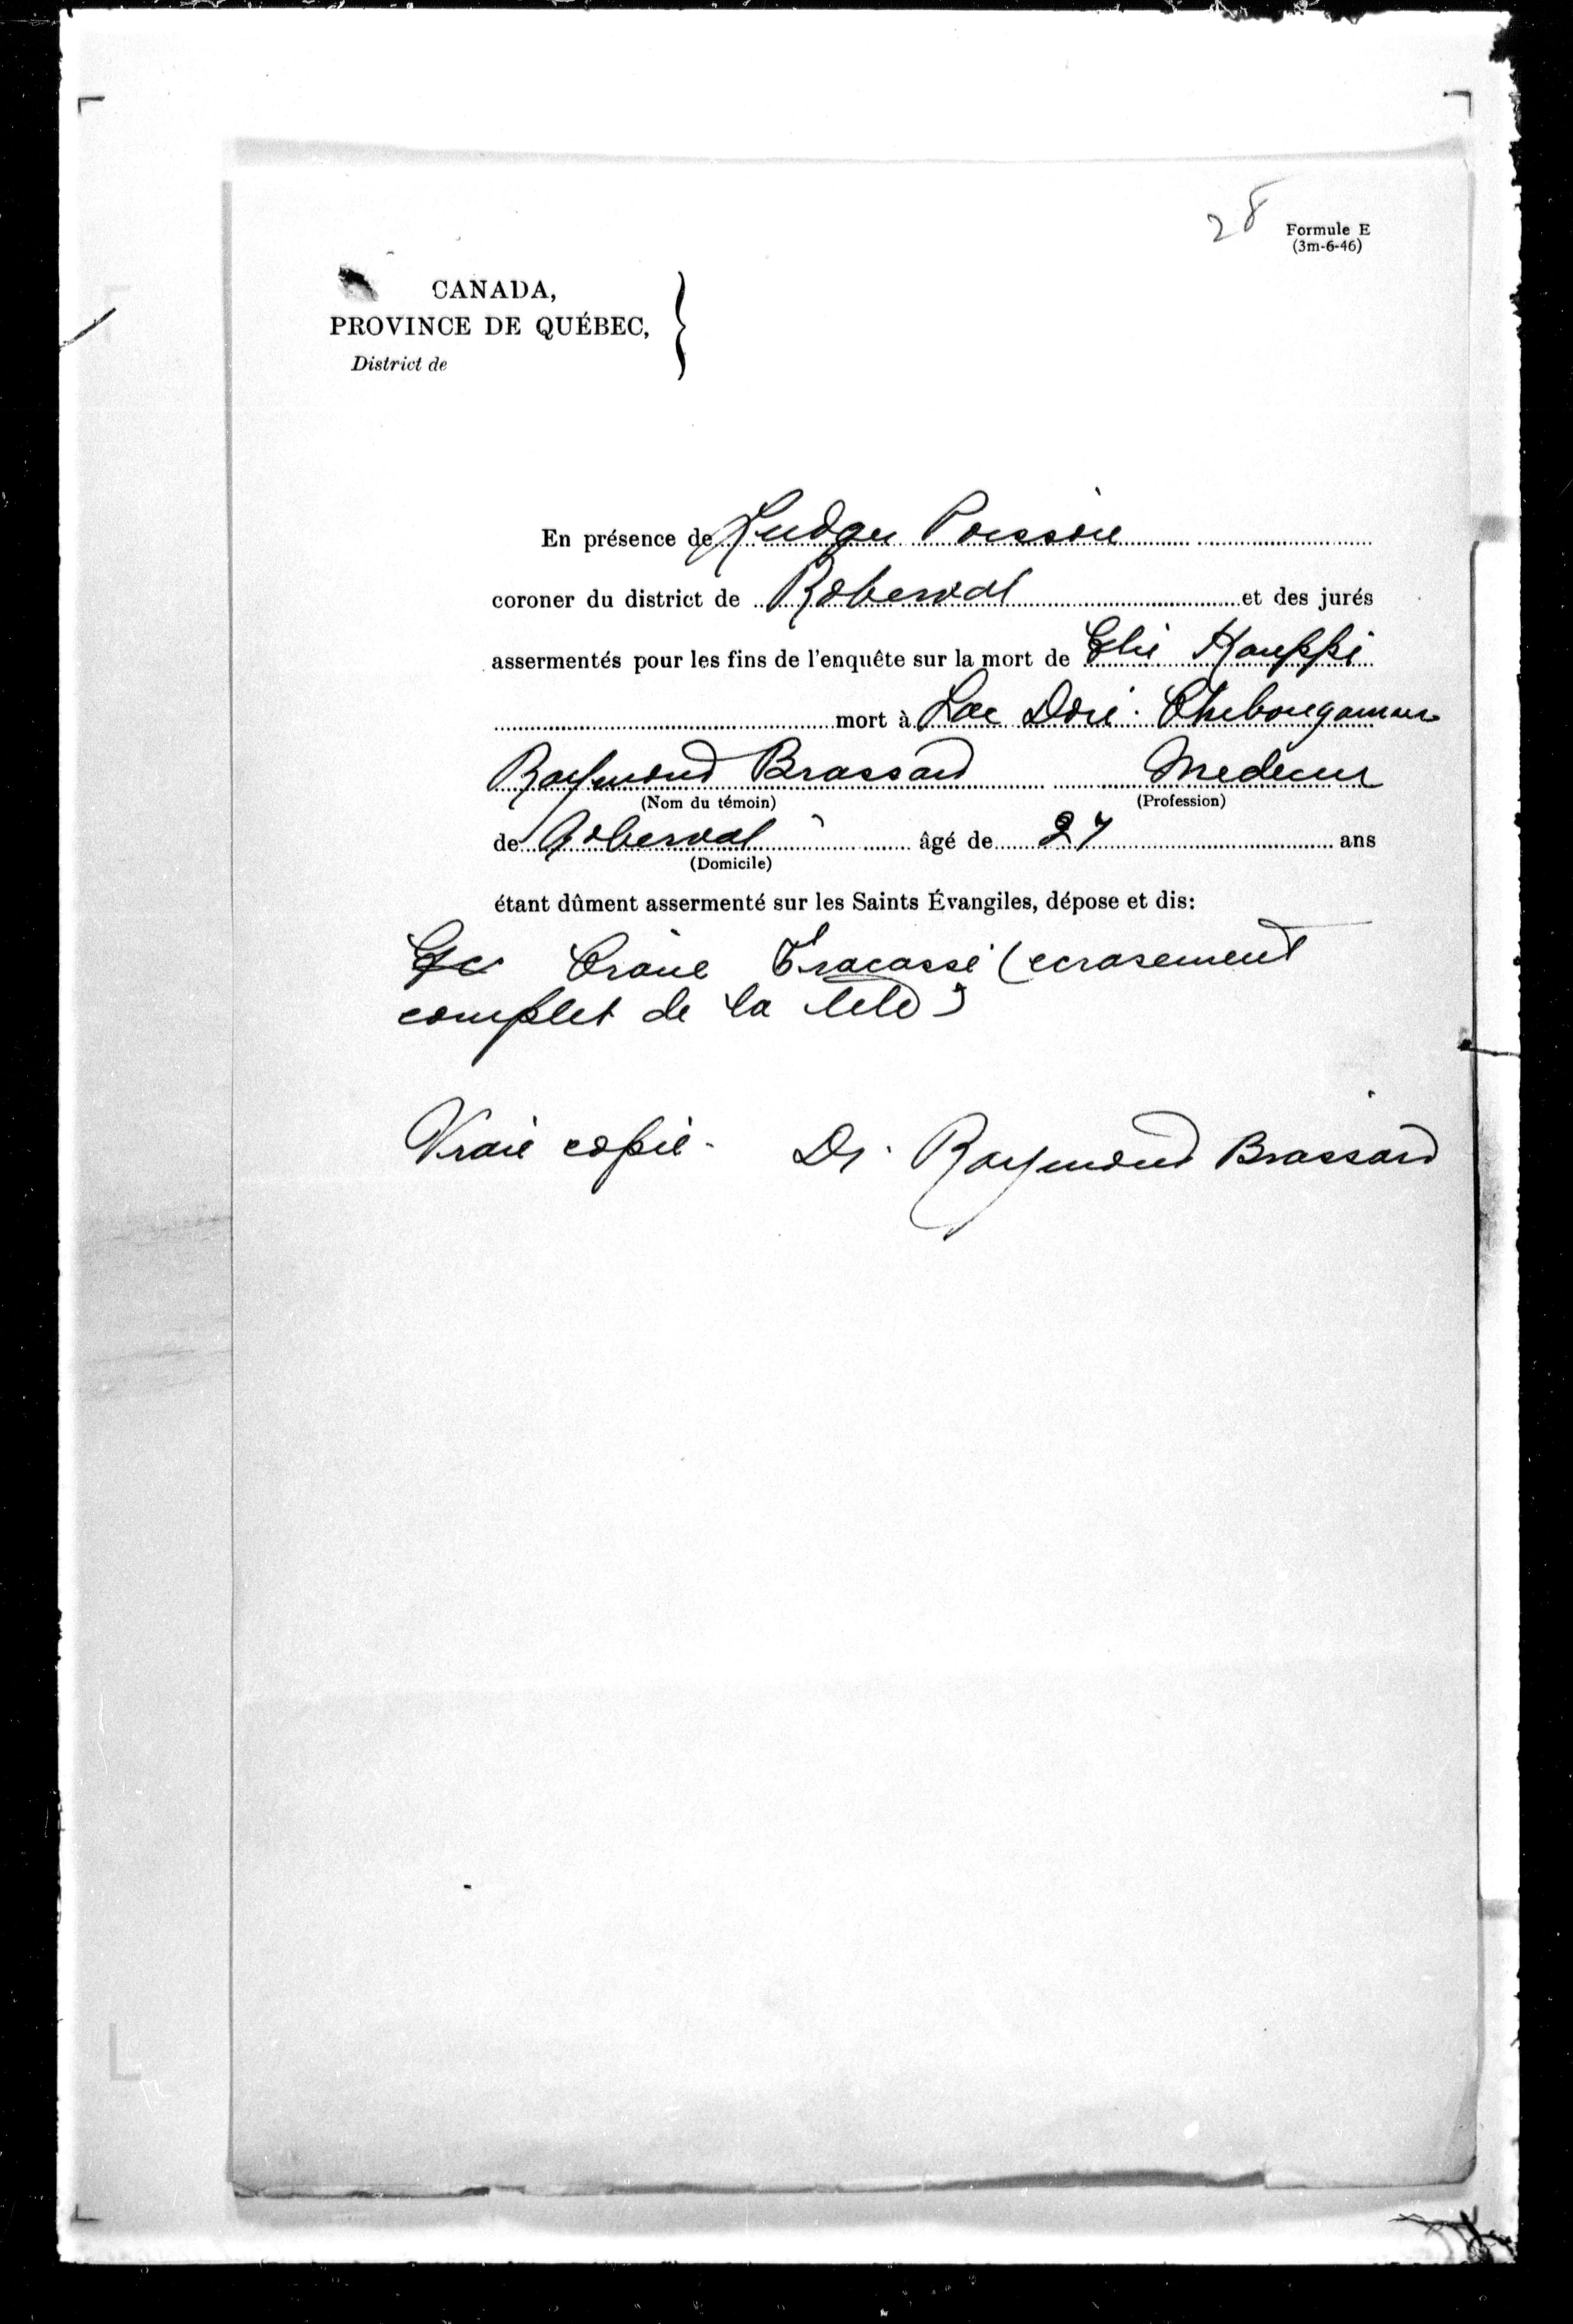 28
Formule E
(3m-6-46)
CANADA,
PROVINCE DE QUÉBEC,
District de
En présence de Ludger Poisson
coroner du district de Roberval et des jurés
assermentés pour les fins de l'enquête sur la mort de Elie Kauppi
mort à Lac Doré. Chibougamau
Raymond Brassard Medecin
(Nom du témoin) (Profession)
de Roberval âgé de 27 ans
(Domicile)
étant dûment assermenté sur les Saints Évangiles, dépose et dis:
Crâne Fracassé (ecrasement
complet de la tete)
Vraie copie. Dr. Raymond Brassard